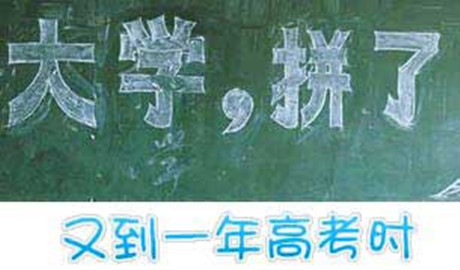 大学,拼了
又到一年高考时